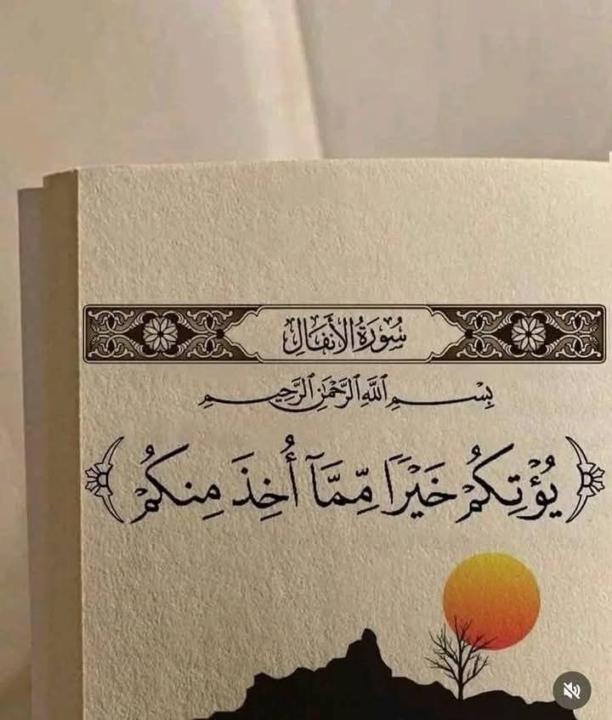 سُورَةُ الأَنفَالِ
بِسْمِ ٱللَّهِ ٱلرَّحْمَٰنِ ٱلرَّحِيمِ
﴿يُؤْتِكُمْ خَيْرًا مِّمَّآ أُخِذَ مِنكُمْ﴾